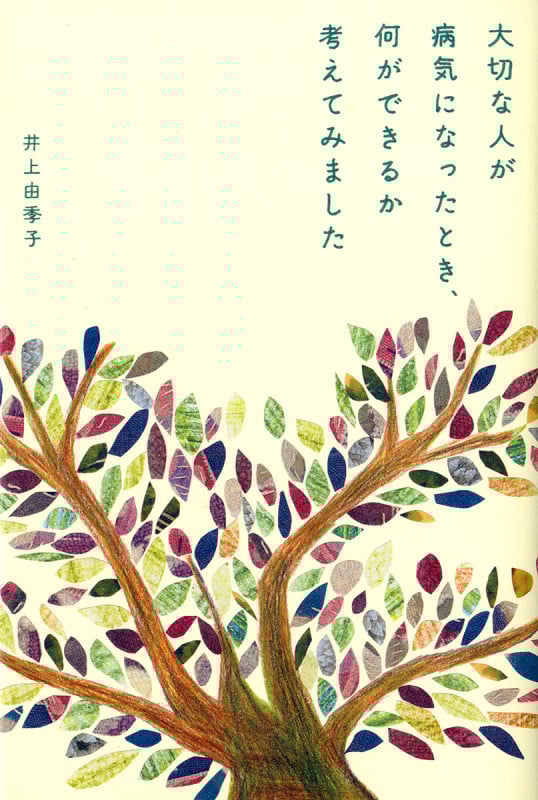 大切な人が
病気になったとき、
何ができるか
考えてみました
井上由季子